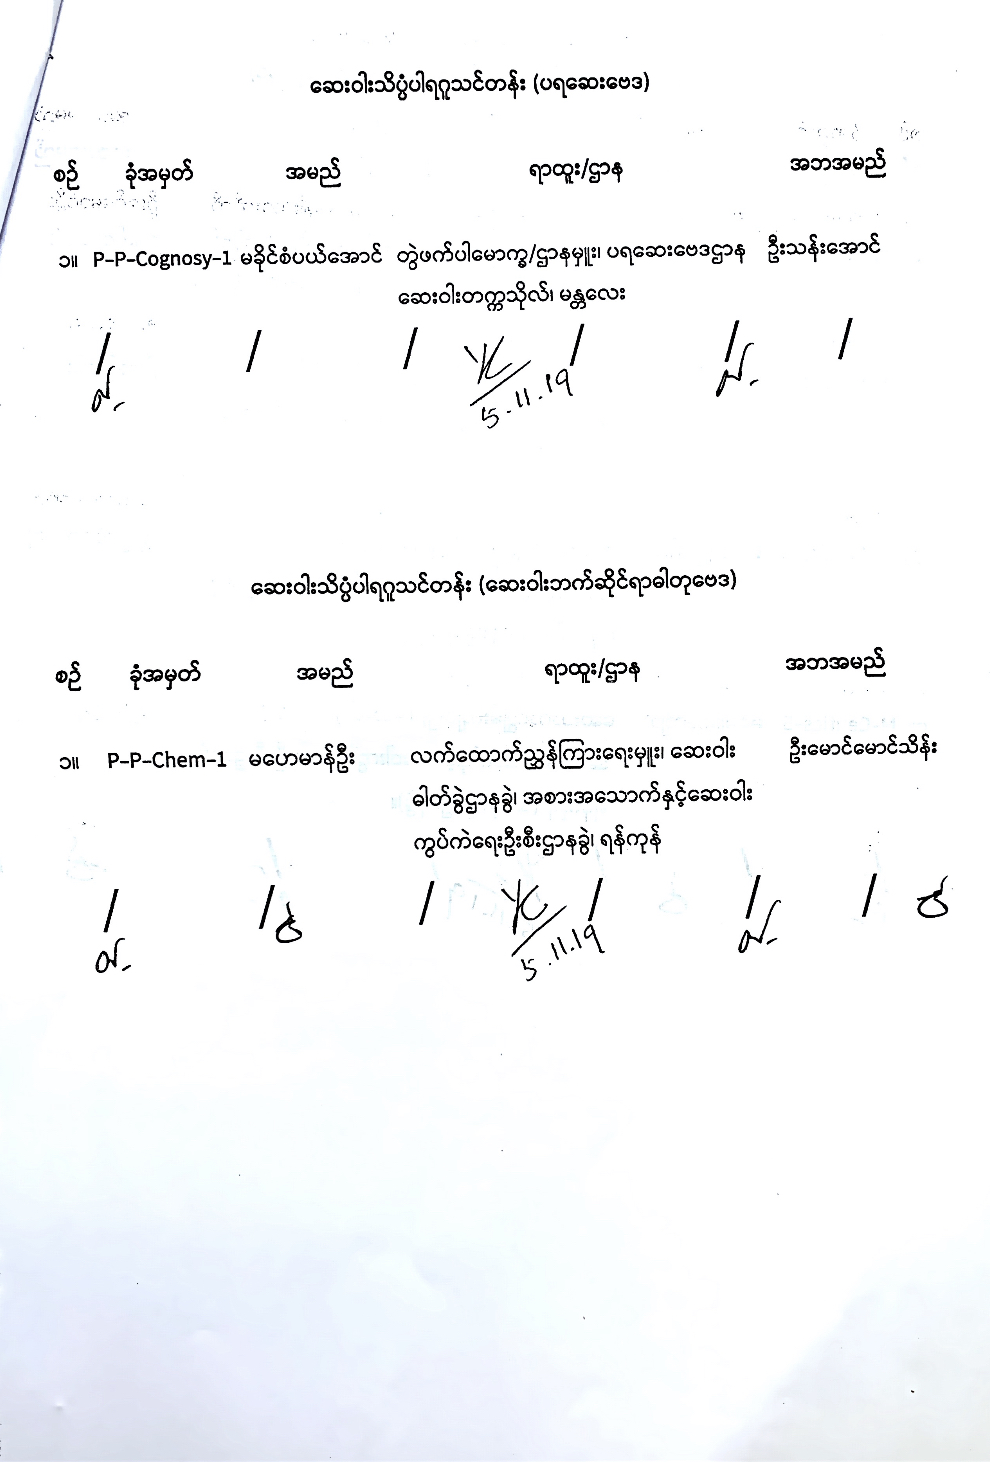 ဆေးဝါးသိပ္ပံပါရဂူသင်တန်း (ပရဆေးဗေဒ)
စဉ် ခုံအမှတ် အမည် ရာထူး/ဌာန အဘအမည်
၁။ P-P-Cognosy-1 မခိုင်စံပယ်အောင် တွဲဖက်ပါမောက္ခ/ဌာနမှူး၊ ပရဆေးဗေဒဌာန ဦးသန်းအောင်
ဆေးဝါးတက္ကသိုလ်၊ မန္တလေး
5.11.19
ဆေးဝါးသိပ္ပံပါရဂူသင်တန်း (ဆေးဝါးဘက်ဆိုင်ရာဓါတုဗေဒ)
စဉ် ခုံအမှတ် အမည် ရာထူး/ဌာန အဘအမည်
၁။ P-P-Chem-1 မဟေမာန်ဦး လက်ထောက်ညွှန်ကြားရေးမှူး၊ ဆေးဝါး ဦးမောင်မောင်သိန်း
ဓါတ်ခွဲဌာနခွဲ၊ အစားအသောက်နှင့်ဆေးဝါး
ကွပ်ကဲရေးဦးစီးဌာနခွဲ၊ ရန်ကုန်
5.11.19